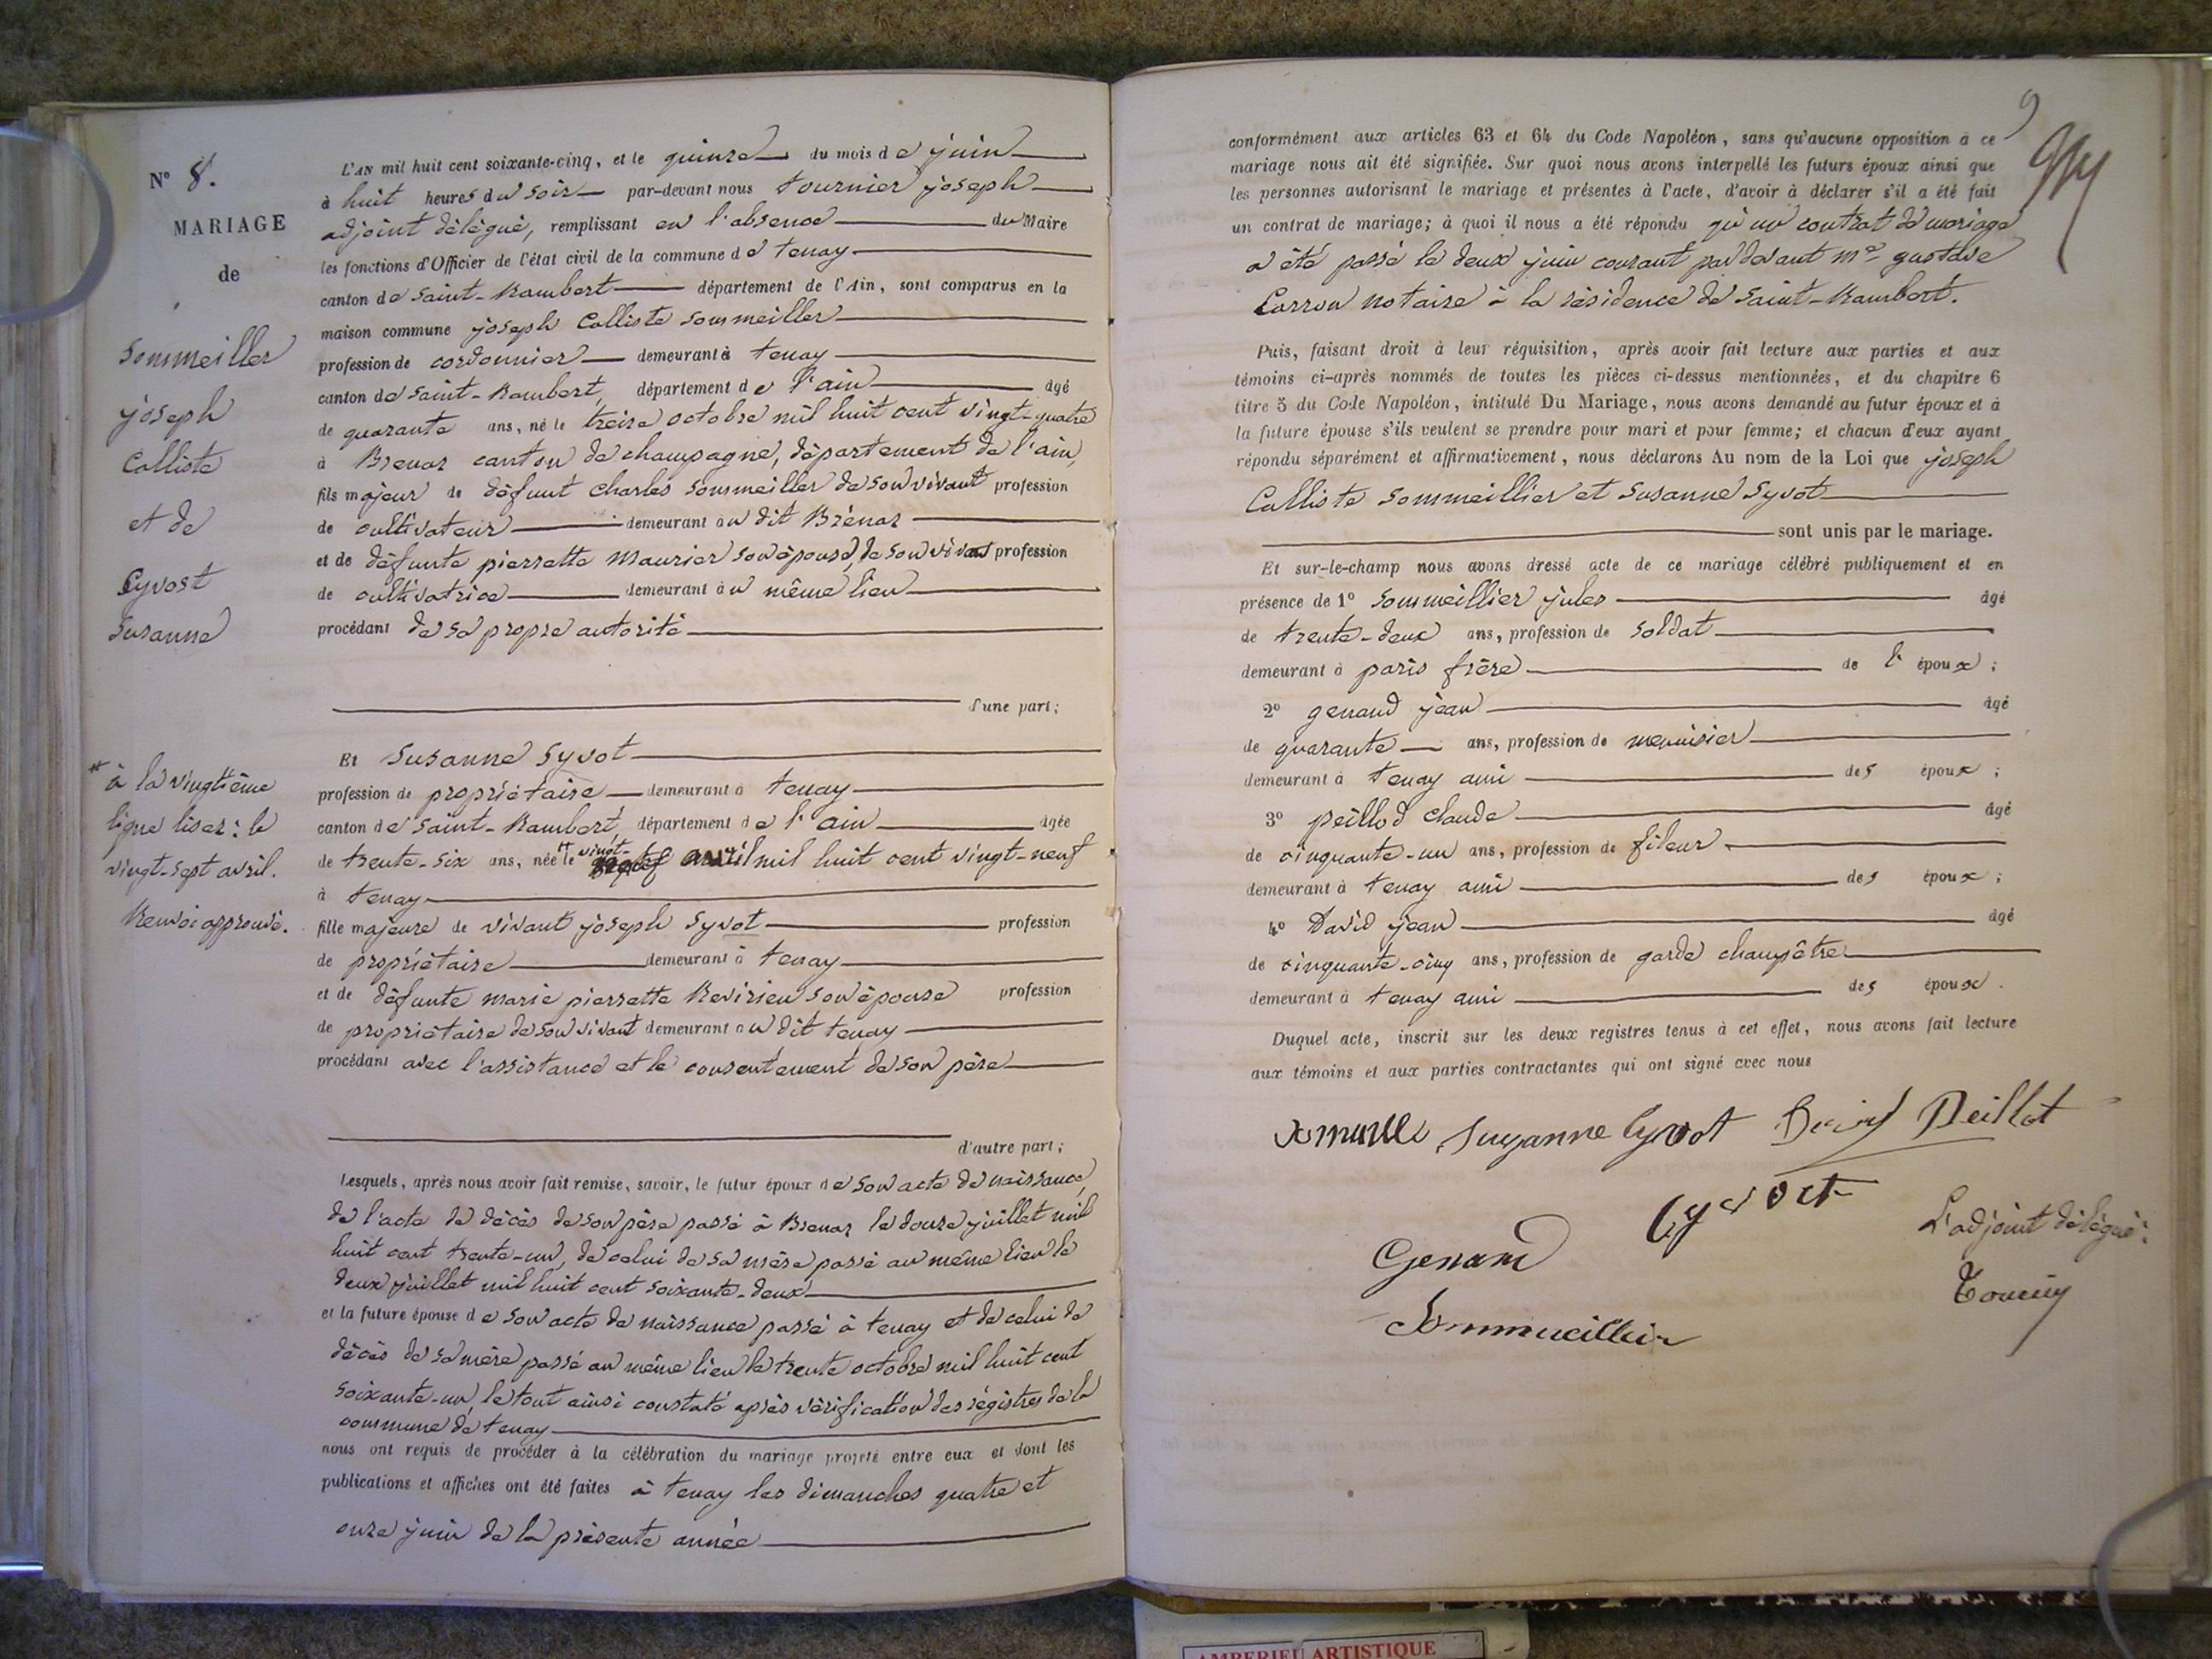 N° 8.
MARIAGE
de
Sommeiller
joseph
Calliste
et de
Cyvost
Susanne
L'AN mil huit cent soixante-cinq, et le quinze du mois de juin
à huit heures du soir par-devant nous tournier joseph
adjoint délégué, remplissant en l'absence du Maire
les fonctions d'Officier de l'état civil de la commune de tenay
canton de Saint-Rambert département de l'Ain, sont comparus en la
maison commune joseph Calliste Sommeiller
profession de cordonnier demeurant à tenay
canton de Saint-Rambert, département de l'ain âgé
de quarante ans, né le treize octobre mil huit cent vingt-quatre
à Brenaz canton de champagne, département de l'ain,
fils majeur de défunt charles Sommeiller de son vivant profession
de cultivateur demeurant au dit Brénaz
et de défunte pierrette Maurier son épouse, de son vivant profession
de cultivatrice demeurant au même lieu
procédant de sa propre autorité
d'une part;
Et Susanne Syvot
profession de propriétaire demeurant à tenay
canton de Saint-Rambert, département de l'ain âgée
de trente-six ans, née le vingt- avril mil huit cent vingt-neuf
à tenay
fille majeure de vivant joseph Syvot profession
de propriétaire demeurant à tenay
et de défunte marie pierrette Revirieu son épouse profession
de propriétaire de son vivant demeurant au dit tenay
procédant avec l'assistance et le consentement de son père
à la vingtième
ligne lisez: le
vingt-sept avril.
Renvoi approuvé.
d'autre part;
Lesquels, après nous avoir fait remise, savoir, le futur époux de son acte de naissance,
de l'acte de décès de son père passé à Brenaz le douze juillet mil
huit cent trente-un, de celui de sa mère passé au même lieu le
deux juillet mil huit cent soixante-deux
et la future épouse de son acte de naissance passé à tenay et de celui de
décès de sa mère passé au même lieu le trente octobre mil huit cent
soixante-un, le tout ainsi constaté après vérification des régistres de la
commune de tenay
nous ont requis de procéder à la célébration du mariage projeté entre eux et dont les
publications et affiches ont été faites à tenay les dimanches quatre et
onze juin de la présente année
9
conformément aux articles 63 et 64 du Code Napoléon, sans qu'aucune opposition à ce
mariage nous ait été signifiée. Sur quoi nous avons interpellé les futurs époux ainsi que
les personnes autorisant le mariage et présentes à l'acte, d'avoir à déclarer s'il a été fait
un contrat de mariage; à quoi il nous a été répondu qu'un contrat de mariage
a été passé le deux juin courant pardevant me gustave
Carron notaire à la résidence de Saint-Rambert.
Puis, faisant droit à leur réquisition, après avoir fait lecture aux parties et aux
témoins ci-après nommés de toutes les pièces ci-dessus mentionnées, et du chapitre 6
titre 5 du Code Napoléon, intitulé Du Mariage, nous avons demandé au futur époux et à
la future épouse s'ils veulent se prendre pour mari et pour femme; et chacun d'eux ayant
répondu séparément et affirmativement, nous déclarons Au nom de la Loi que joseph
Calliste Sommeillier et Susanne Syvot
sont unis par le mariage.
Et sur-le-champ nous avons dressé acte de ce mariage célébré publiquement et en
présence de 1° Sommeillier jules âgé
de trente-deux ans, profession de soldat
demeurant à paris frère de l'époux;
2° genaud jean âgé
de quarante ans, profession de menuisier
demeurant à tenay ami des époux;
3° peillod claude âgé
de cinquante-un ans, profession de fileur
demeurant à tenay ami des époux;
4° David jean âgé
de cinquante-cinq ans, profession de garde champêtre
demeurant à tenay ami des époux.
Duquel acte, inscrit sur les deux registres tenus à cet effet, nous avons fait lecture
aux témoins et aux parties contractantes qui ont signé avec nous
Suzanne Cyvot David Peillot
Genand
L'adjoint délégué:
Sommeillier
AMBERIEU ARTISTIQUE